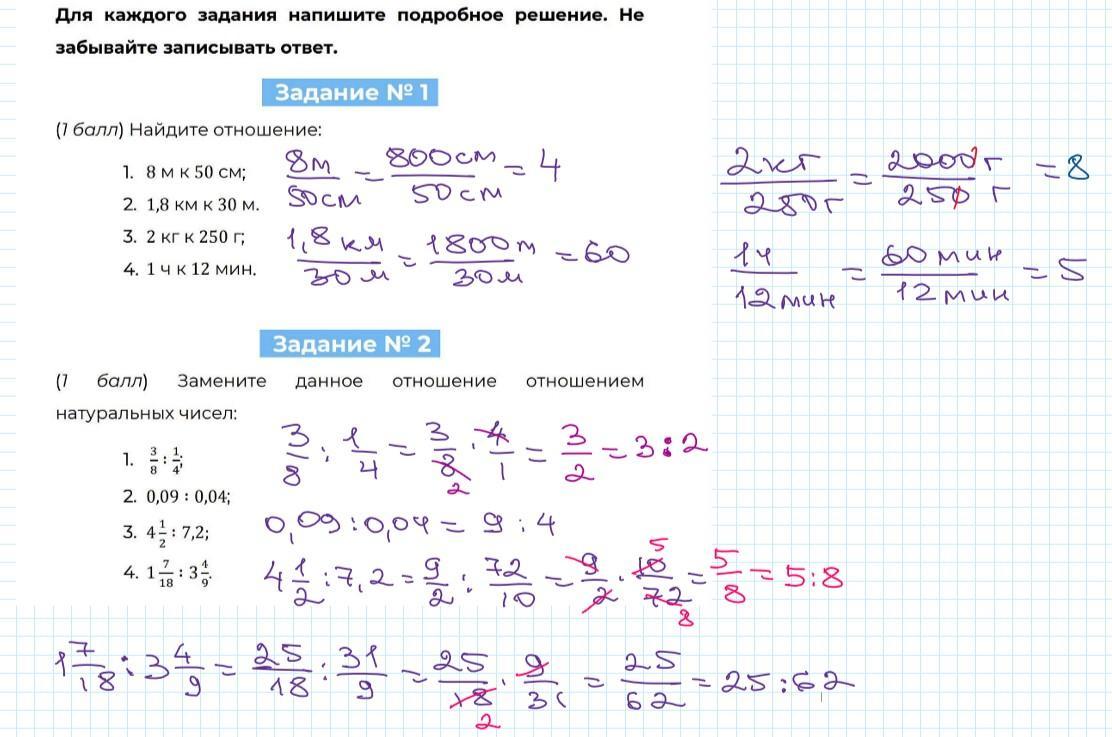 Для каждого задания напишите подробное решение. Не
забывайте записывать ответ.
Задание № 1
(1 балл) Найдите отношение:
1. 8 м к 50 см;
2. 1,8 км к 30 м.
3. 2 кг к 250 г;
4. 1 ч к 12 мин.
8м/50см = 800см/50см = 4
1,8км/30м = 1800м/30м = 60
2кг/250г = 2000г/250г = 8
1ч/12мин = 60мин/12мин = 5
Задание № 2
(1 балл) Замените данное отношение отношением
натуральных чисел:
1. 3/8 : 1/4;
2. 0,09 : 0,04;
3. 4 1/2 : 7,2;
4. 1 7/18 : 3 4/9.
3/8 : 1/4 = 3/8 · 4/1 = 3/2 = 3:2
2
0,09:0,04 = 9:4
4 1/2 : 7,2 = 9/2 : 72/10 = 9/2 · 10/72 = 5/8 = 5:8
5
8
1 7/18 : 3 4/9 = 25/18 : 31/9 = 25/18 · 9/31 = 25/62 = 25:62
2